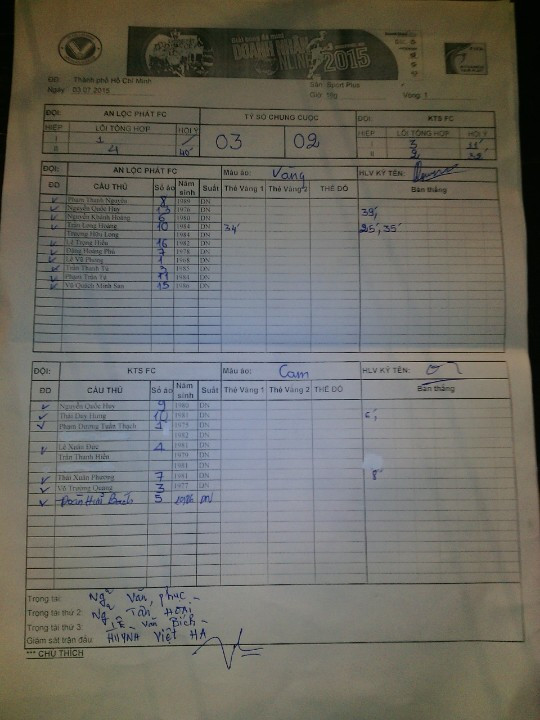 DOANH NHÂN
2015
ĐĐ: Thành phố Hồ Chí Minh
Sân: Sport Plus
Ngày: 03.07.2015
Giờ: Vòng: 1
AN LỘC PHÁT FC TỶ SỐ CHUNG CUỘC ĐỘI: KTS FC
HIỆP LỖI TỔNG HỢP HỘI Ý 03 02 HIỆP LỖI TỔNG HỢP HỘI Ý
I 1 I 3
II 4 40' II 2
ĐỘI: AN LỘC PHÁT FC Màu áo: Vàng HLV KÝ TÊN:
ĐD CẦU THỦ Số áo Năm sinh Suất Thẻ Vàng 1 Thẻ Vàng 2 THẺ ĐỎ Bàn thắng
Phạm Thanh Nguyên 8 1989 DN
Nguyễn Quốc Huy 13 1976 DN 39'
Nguyễn Khánh Hoàng 6 1980 DN
Trần Long Hoàng 10 1984 DN 34' 25', 35'
Trương Hữu Long 1984 DN
Lê Trung Hiền 16 1982 DN
Đặng Hoàng Phú 7 1978 DN
Lê Vũ Phong 1 1968 DN
Trần Thanh Tú 3 1985 DN
Phạm Trần Tú 11 1984 DN
Vũ Quách Minh Sao 15 1986 DN
ĐỘI: KTS FC Màu áo: Cam HLV KÝ TÊN:
ĐD CẦU THỦ Số áo Năm sinh Suất Thẻ Vàng 1 Thẻ Vàng 2 THẺ ĐỎ Bàn thắng
Nguyễn Quốc Huy 9 1980 DN
Thái Duy Hùng 10 1981 DN 6'
Phạm Dương Tuấn Thạch 1 1975 DN
1982 DN
Lê Xuân Đức 4 1981 DN
Trần Thanh Hiền 1979 DN
1981 DN
Thái Xuân Phương 7 1981 DN 8'
Võ Trường Quảng 3 1977 DN
Đoàn Hữu 5 1986 DN
Trọng tài: Ng Văn Phúc
Trọng tài thứ 2: Ng Tấn Hoài
Trọng tài thứ 3: Lê Văn Bích
Giám sát trận đấu: HUỲNH Việt HÀ
*** CHÚ THÍCH